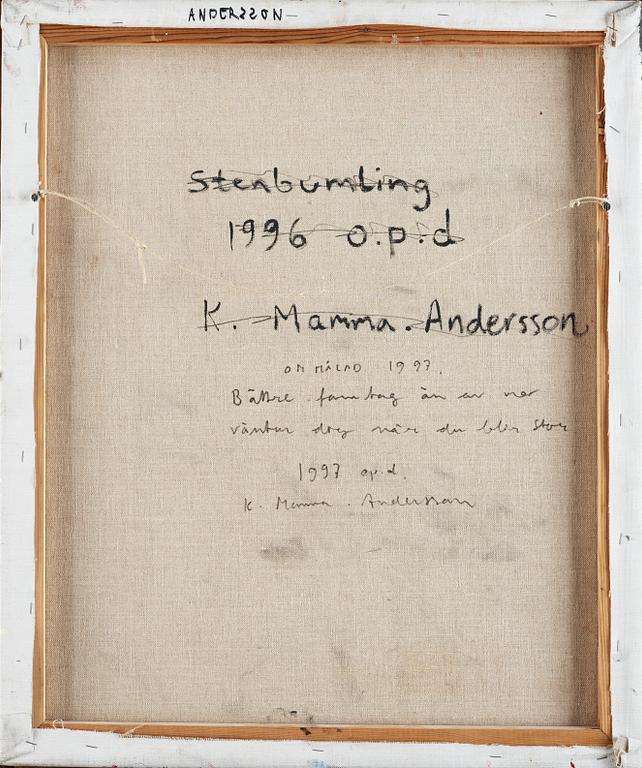 ANDERSSON
Stenbumling
1996 o.p.d
K. Mamma. Andersson
OMMÅLAD 1997.
Bättre famtag än av mer
väntar dig när du blir stor
1997 op.d.
K. Mamma. Andersson